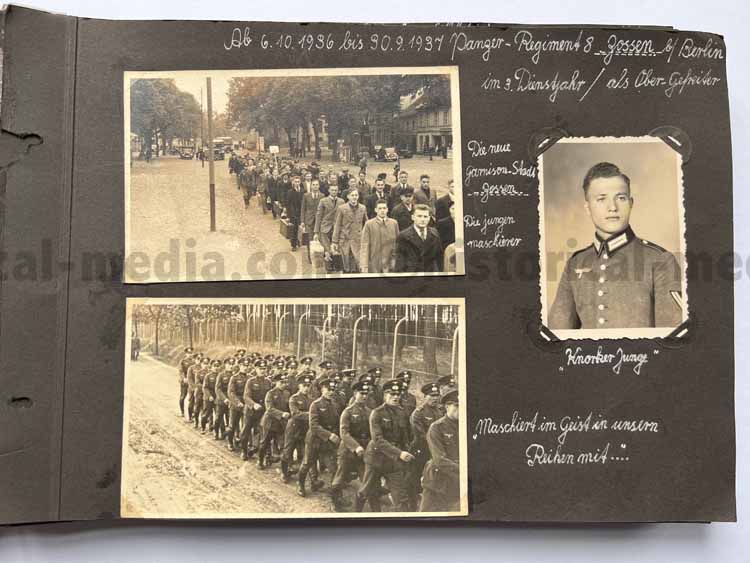 Ab 6.10.1936 bis 30.9.1937 Panzer-Regiment 8 Zossen b/ Berlin
im 3. Dienstjahr / als Ober-Gefreiter
Die neue
Garnison-Stadt
Zossen
Die jungen
maschierer
"Knorker Junge"
"Maschiert im Geist in unsern
Reihen mit...."
cal-media.com
historical-med